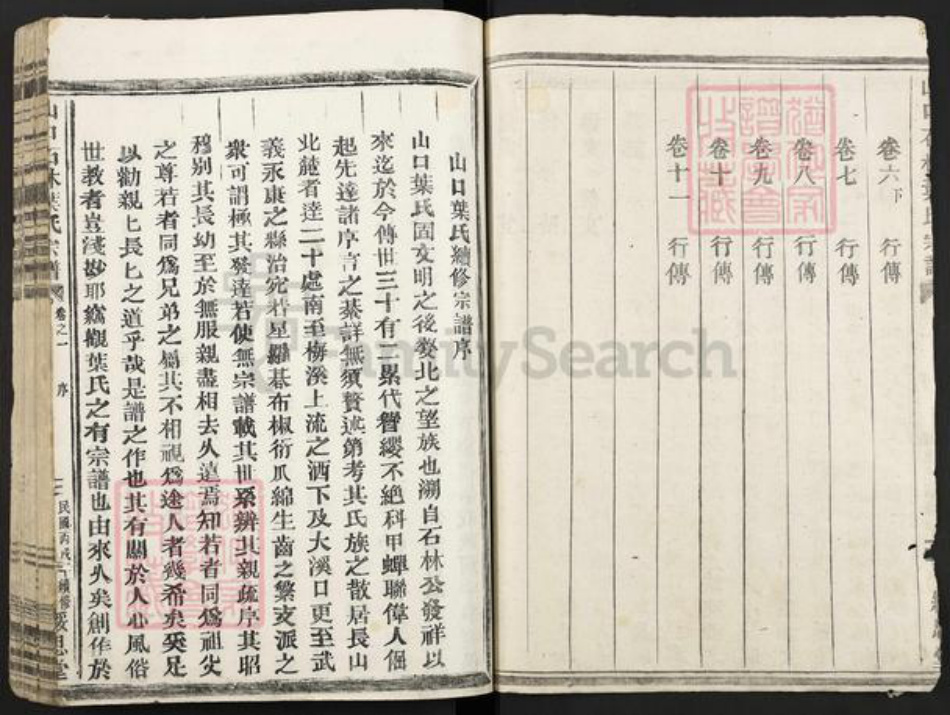 卷六下 行傳
卷七 行傳
卷八 行傳
卷九 行傳
卷十 行傳
卷十一 行傳
山口葉氏續修宗譜序
山口葉氏固文明之後婺北之望族也溯自石林公發祥以
來迄於今傳世三十有二累代簪纓不絶科甲蟬聯偉人倔
起先達諸序言之綦詳無須贅述第考其氏族之散居長山
北麓者達二十處南至梅溪上流之洒下及大溪口更至武
義永康之縣治宛若星羅碁布椒衍瓜綿生齒之繁支派之
衆可謂極其發達若使無宗譜載其世系辨其親疏序其昭
穆别其長幼至於無服親盡相去久遠焉知若者同爲祖父
之尊若者同爲兄弟之屬其不相視爲途人者幾希矣奚足
以勸親匕長匕之道乎哉是譜之作也其有關於人心風俗
世教者豈淺尠耶竊觀葉氏之有宗譜也由來久矣創作於
山口石林葉氏宗譜 卷之一 序 民國丙戌 續修
FamilySearch